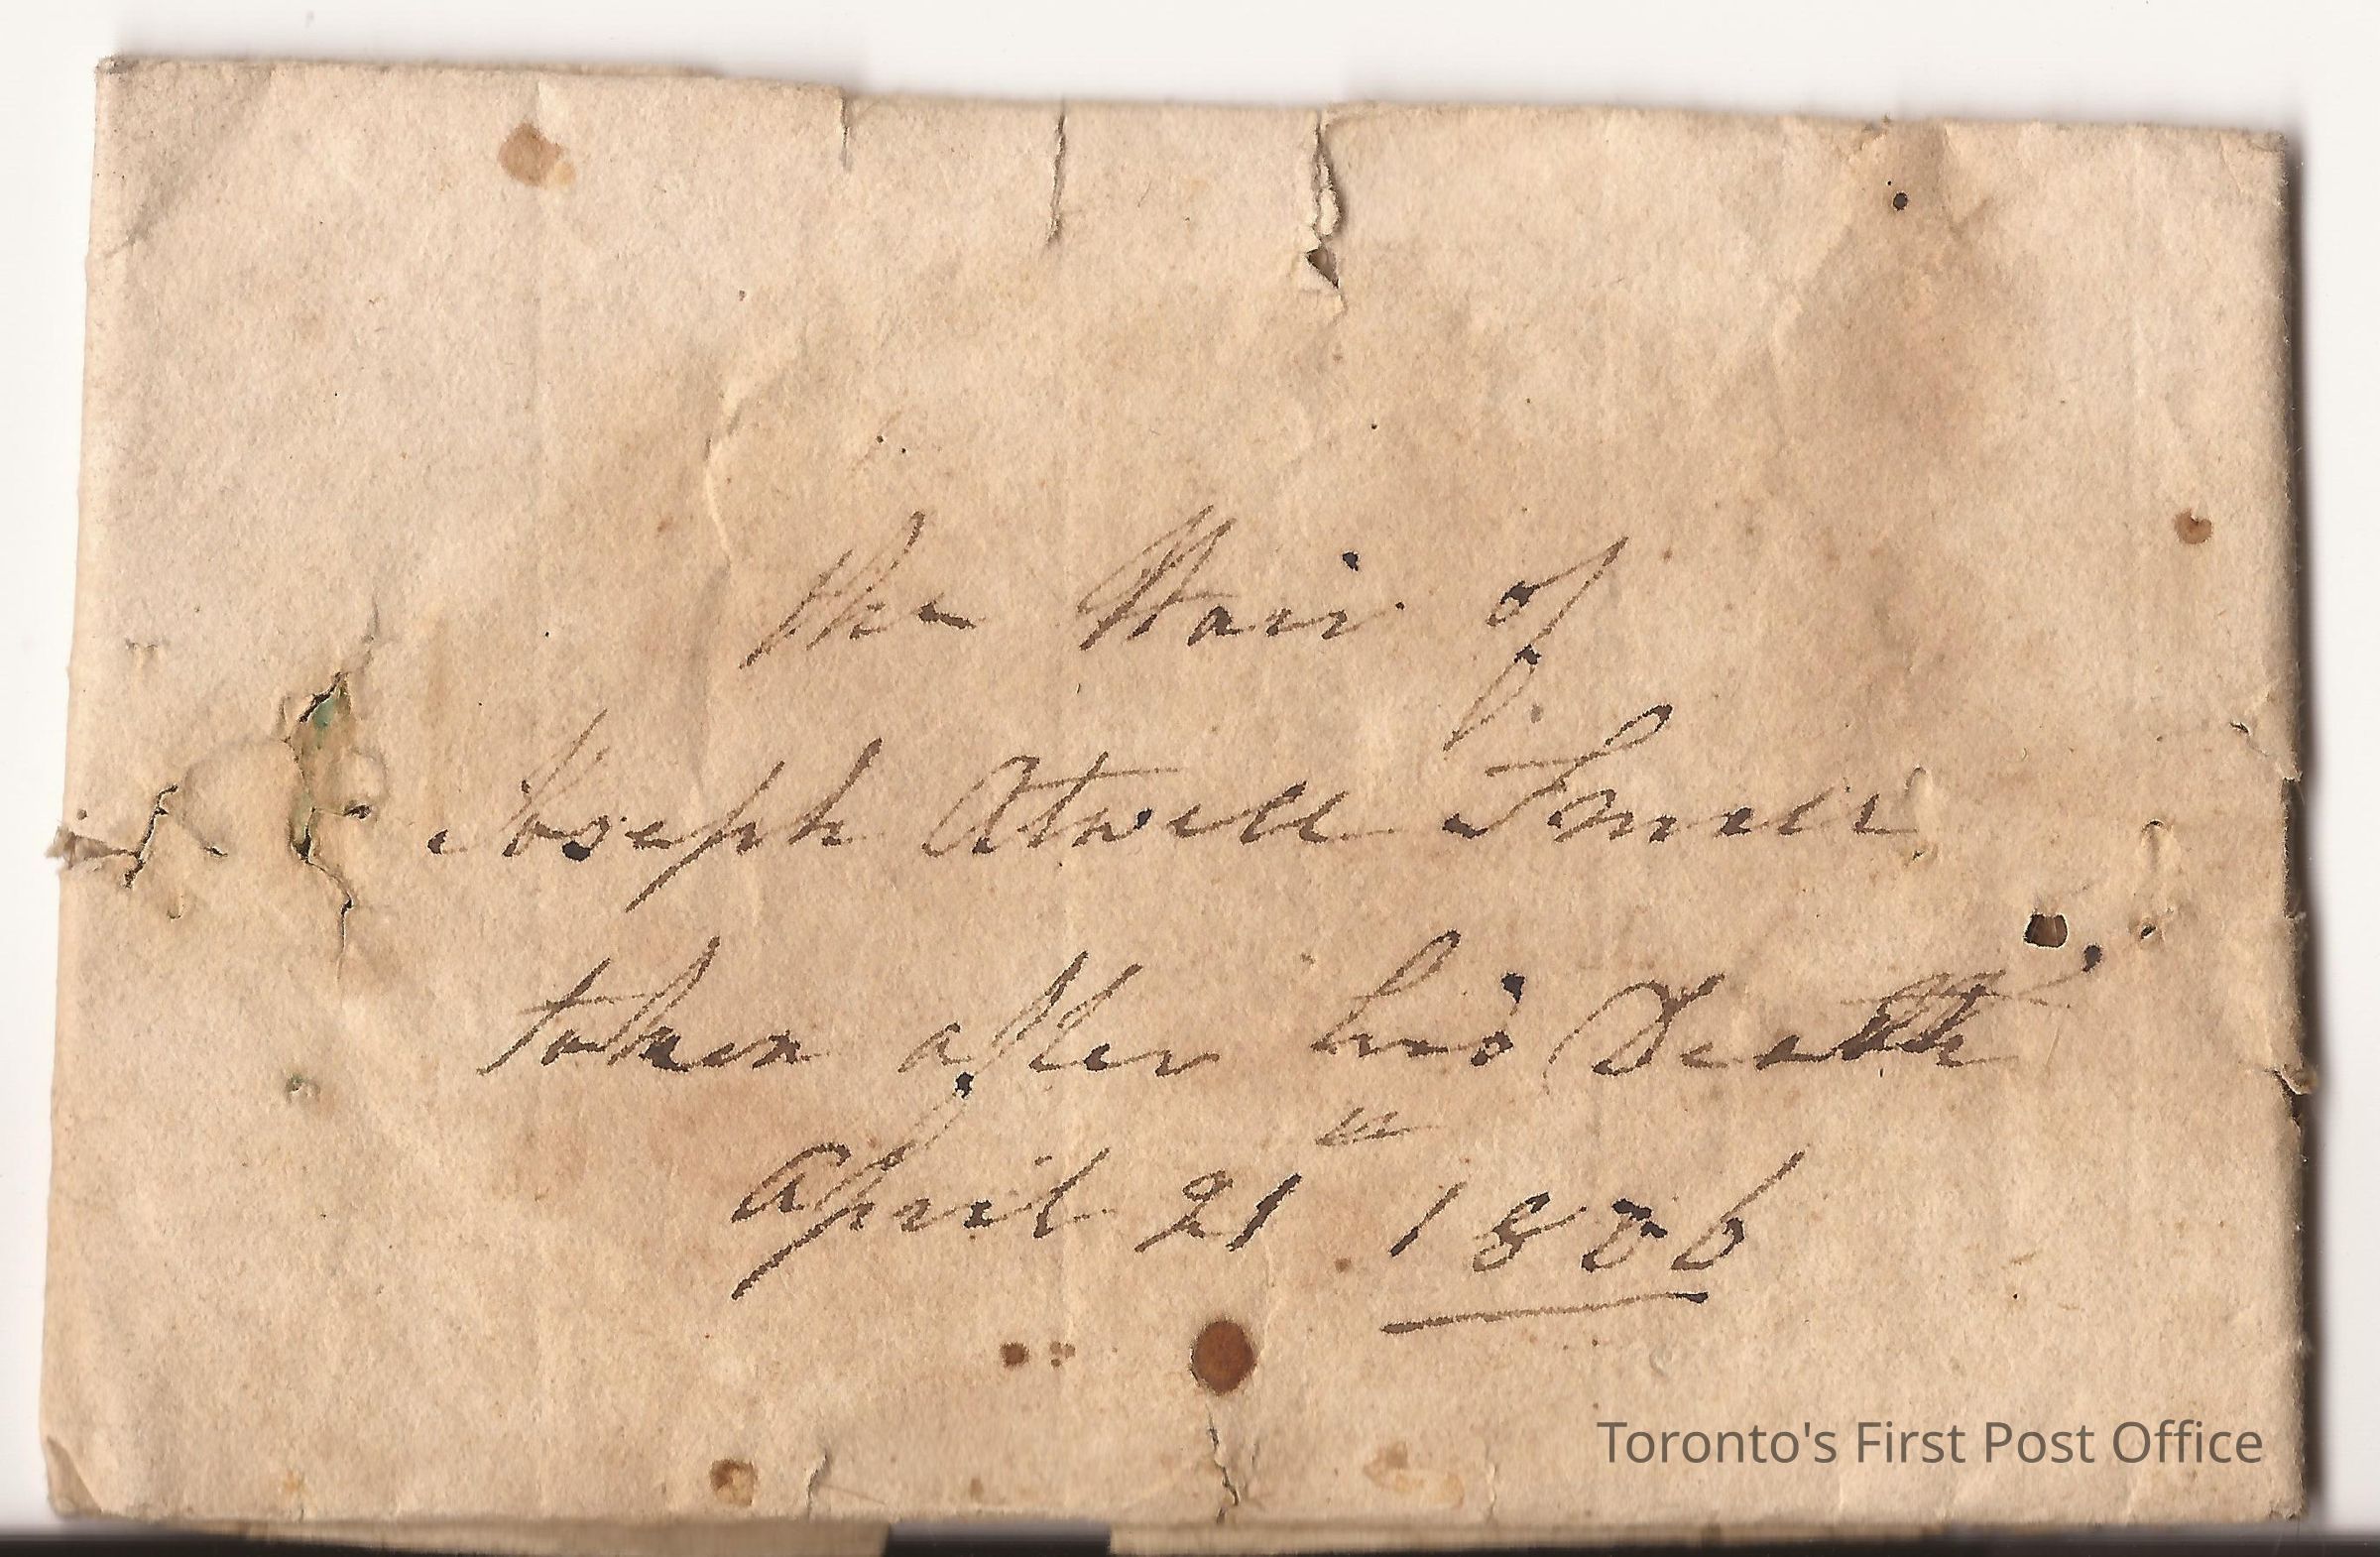 the Hair of
Joseph Atwell
taken after his Death
April 21
Toronto's First Post Office